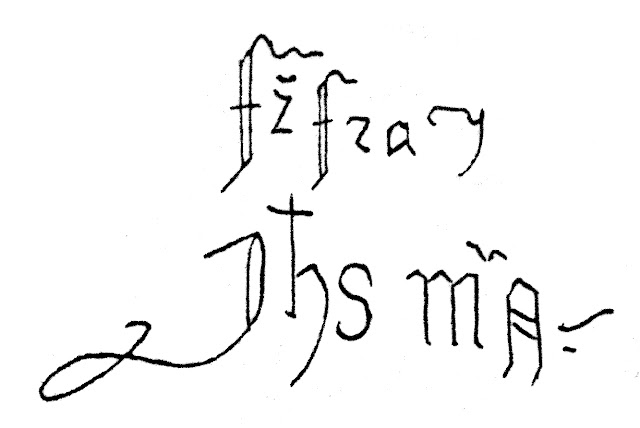 fž fray
Jhs m̃A